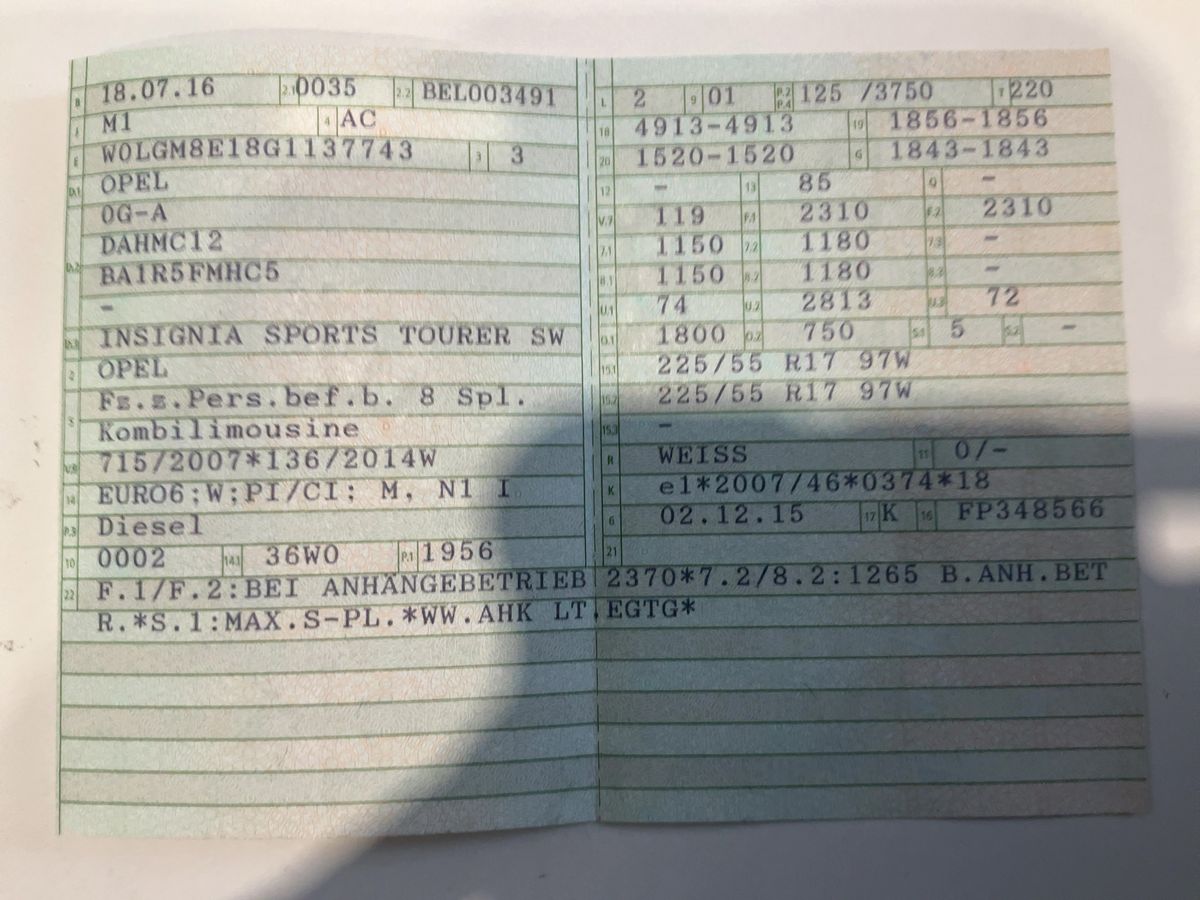 B 18.07.16 2.1 0035 2.2 BEL003491
J M1 4 AC
E W0LGM8E18G1137743 3 3
D.1 OPEL
0G-A
D.2 DAHMC12
BA1R5FMHC5
-
D.3 INSIGNIA SPORTS TOURER SW
2 OPEL
5 Fz.z.Pers.bef.b. 8 Spl.
Kombilimousine
V.9 715/2007*136/2014W
14 EURO6;W;PI/CI; M, N1 I
P.3 Diesel
10 0002 14.1 36W0 P.1 1956
L 2 9 01 P.2 P.4 125 /3750 T 220
18 4913-4913 19 1856-1856
20 1520-1520 G 1843-1843
12 - 13 85 Q -
V.7 119 F.1 2310 F.2 2310
7.1 1150 7.2 1180 7.3 -
8.1 1150 8.2 1180 8.3 -
U.1 74 U.2 2813 U.3 72
O.1 1800 O.2 750 S.1 5 S.2 -
15.1 225/55 R17 97W
15.2 225/55 R17 97W
15.3 -
R WEISS 11 0/-
K e1*2007/46*0374*18
6 02.12.15 17 K 16 FP348566
21
22 F.1/F.2:BEI ANHÄNGEBETRIEB 2370*7.2/8.2:1265 B.ANH.BET
R.*S.1:MAX.S-PL.*WW.AHK LT.EGTG*